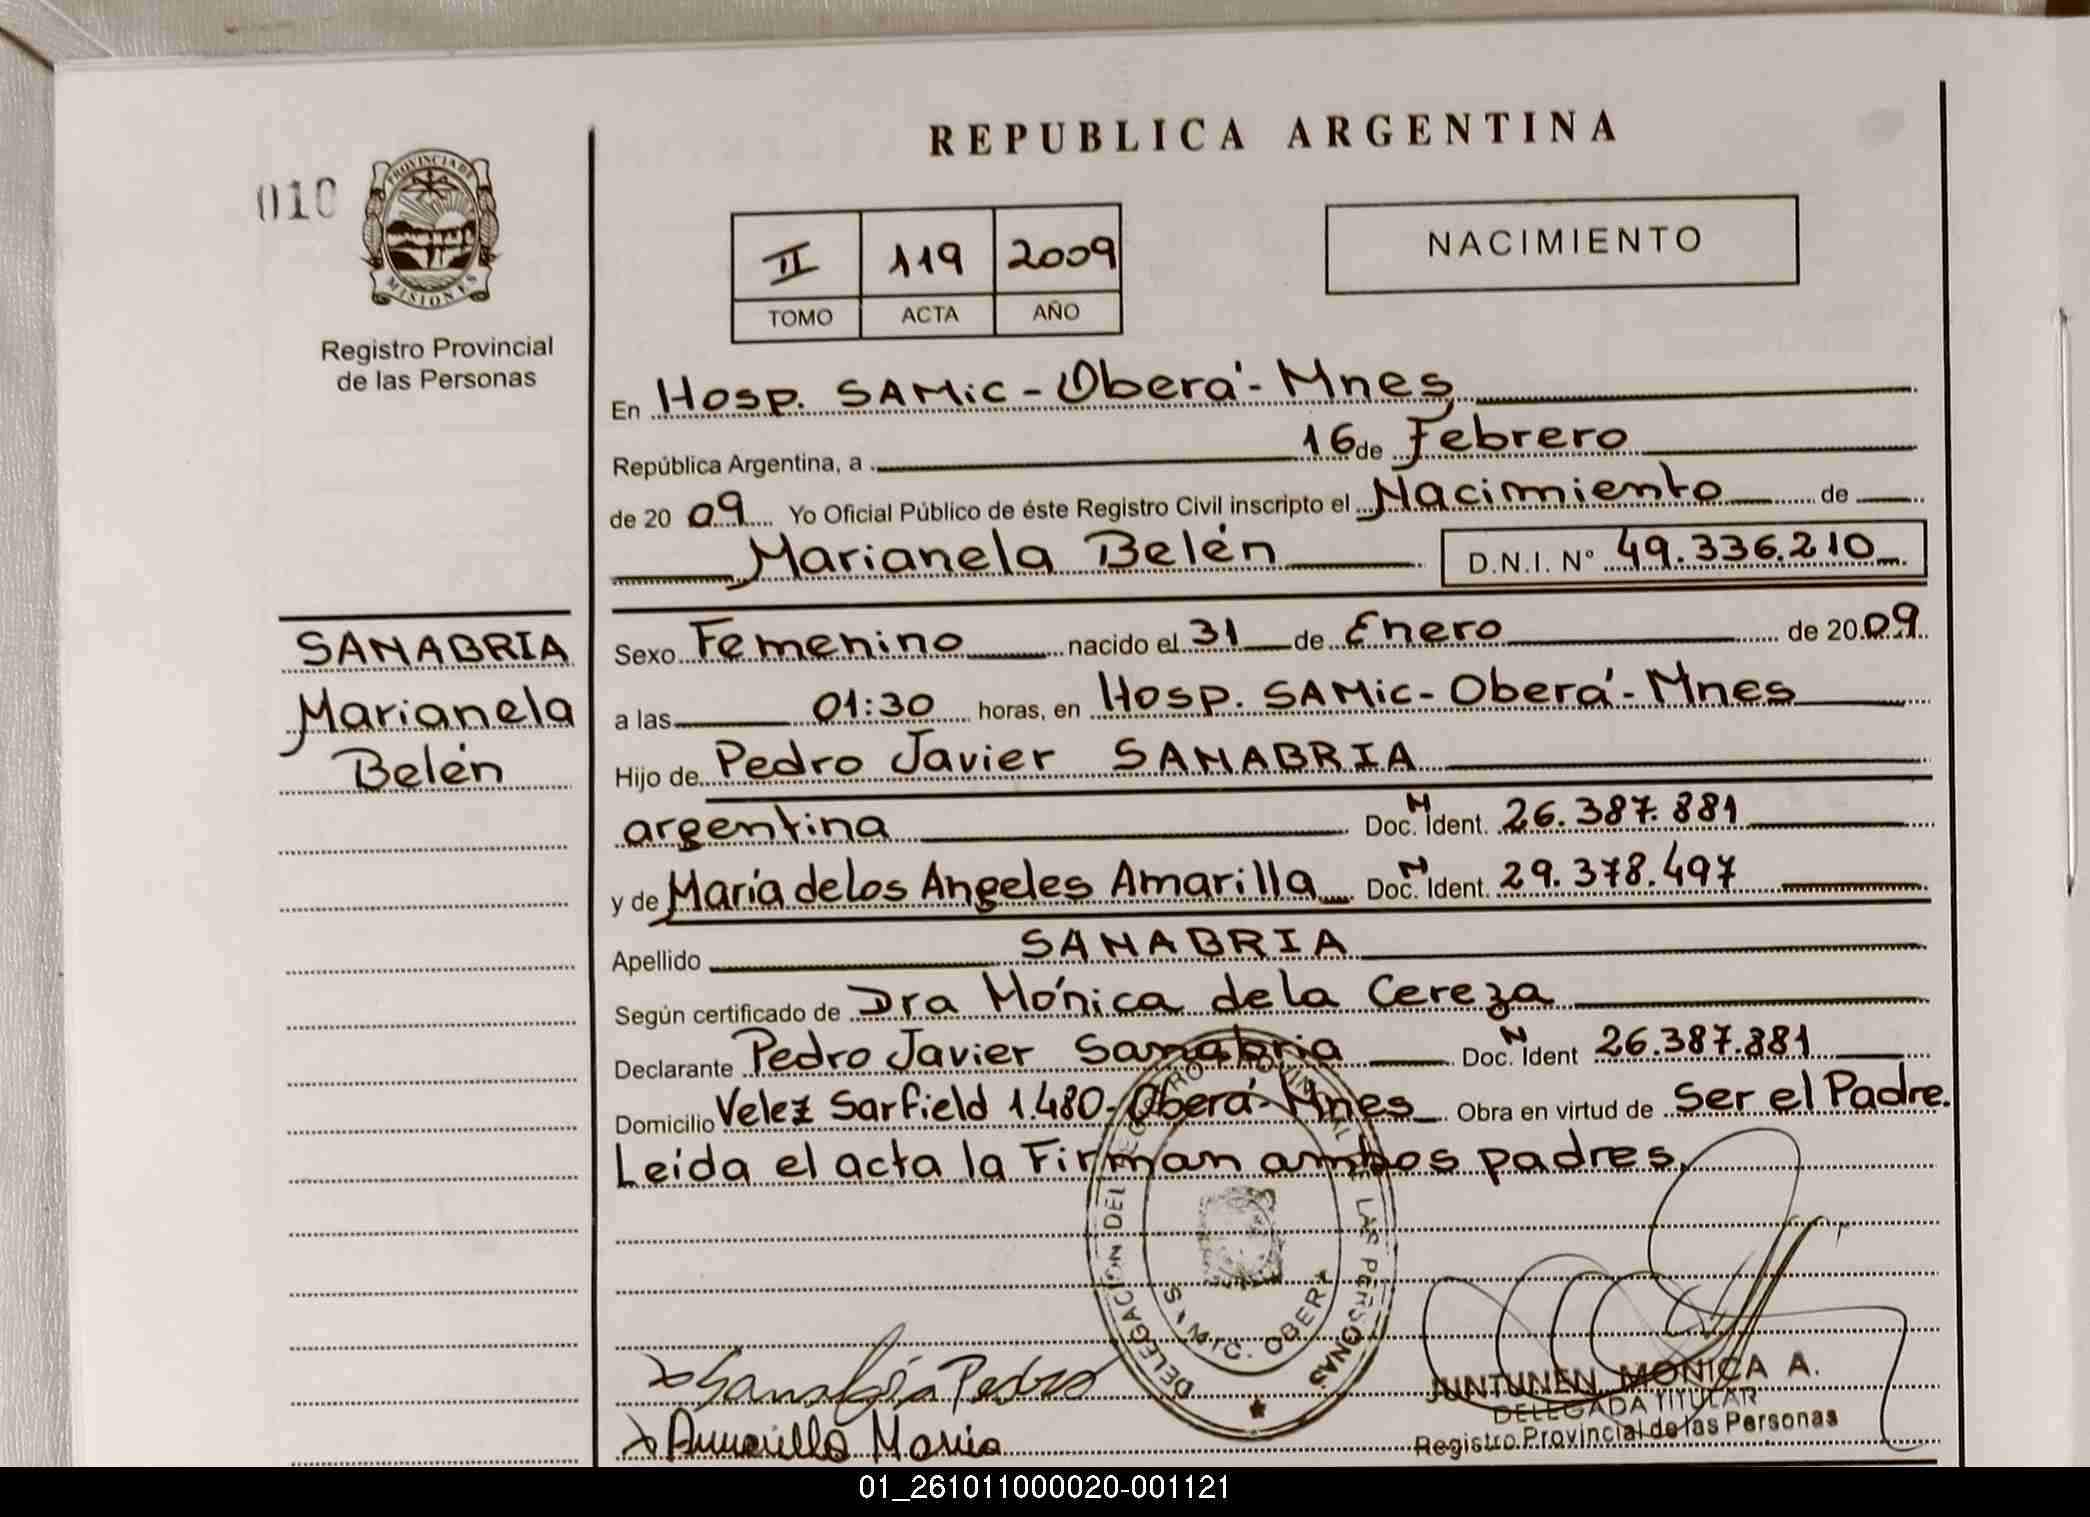 REPUBLICA ARGENTINA
010
PROVINCIA DE
MISIONES
Registro Provincial
de las Personas
II 119 2009
TOMO ACTA AÑO
NACIMIENTO
En Hosp. SAMic - Oberá - Mnes
República Argentina, a 16 de Febrero
de 20 09 Yo Oficial Público de éste Registro Civil inscripto el Nacimiento de
Marianela Belén D.N.I. N° 49.336.210
SANABRIA
Marianela
Belén
Sexo Femenino nacido el 31 de Enero de 20 09
a las 01:30 horas, en Hosp. SAMic - Oberá - Mnes
Hijo de Pedro Javier SANABRIA
argentina Doc. N Ident. 26.387.881
y de María de los Angeles Amarilla Doc. N Ident. 29.378.497
Apellido SANABRIA
Según certificado de Dra Mónica de la Cereza
Declarante Pedro Javier Sanabria Doc. N Ident 26.387.881
Domicilio Velez Sarfield 1.480 - Oberá - Mnes Obra en virtud de Ser el Padre.
Leída el acta la Firman ambos padres.
DELEGACION DEL REGISTRO PROVINCIAL DE LAS PERSONAS
OBERA
Sanabria Pedro
Amarilla Maria
JUNTUNEN MONICA A.
DELEGADA TITULAR
Registro Provincial de las Personas
01_261011000020-001121